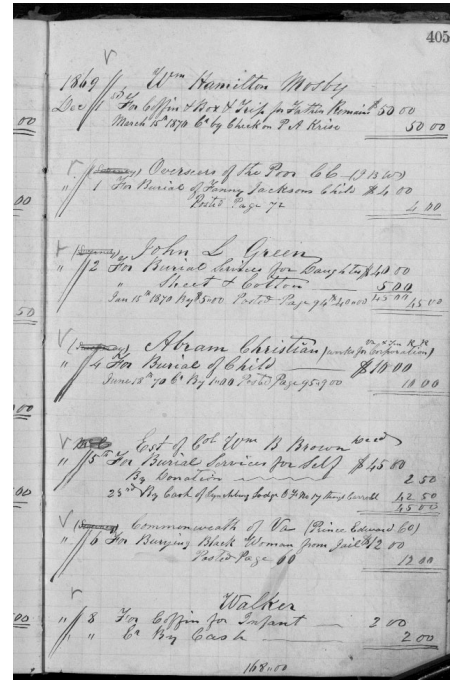 405
1869 Wm Hamilton Mosby
Dec 1st For Coffin & Box & Trip for Father Remains 50 00
March 15th 1870 Cr by Check on P A Krise 50 00
Overseers of the Poor C C
" 1 For Burial of Fanny Jacksons Child $4.00
Posted Page 72 4.00
John L Green
" 2 For Burial Services for Daughter $40.00
" Sheet & Cotton 5 00
Jan 15th 1870 By $5.00 Posted Page 94th 40.00 45 00 45 00
Abram Christian (works for Corporation)
" 4 For Burial of Child $10 00
June 18th 70 Cr By 1.00 Posted Page 95 9 00 10 00
Est of Col Wm B Brown Decd
" 5th For Burial Services for Self $45 00
By Donation 2 50
23rd By Cash of Lynchburg Lodge O F No 17 42 50
45 00
Commonwealth of Va (Prince Edward Co)
" 6 For Burying Black Woman from Jail $12 00
Posted Page 60 12 00
Walker
" 8 For Coffin for Infant 2 00
" " Cr By Cash 2 00
168.00
00
00
50
00
00
00